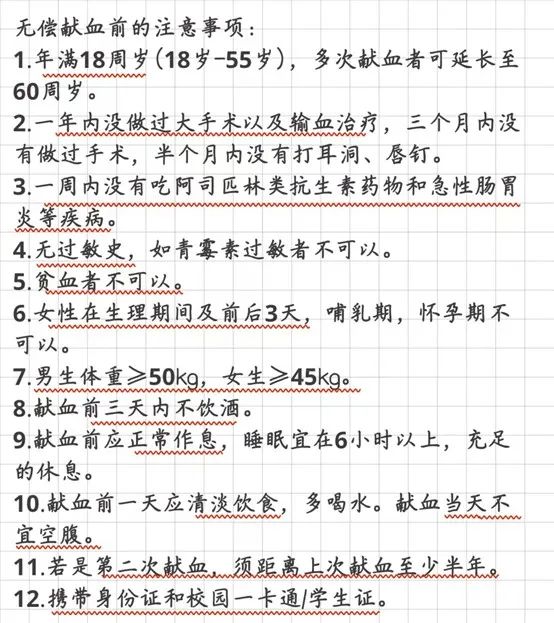 无偿献血前的注意事项：
1.年满18周岁(18岁-55岁)，多次献血者可延长至
60周岁。
2.一年内没做过大手术以及输血治疗，三个月内没
有做过手术，半个月内没有打耳洞、唇钉。
3.一周内没有吃阿司匹林类抗生素药物和急性肠胃
炎等疾病。
4.无过敏史，如青霉素过敏者不可以。
5.贫血者不可以。
6.女性在生理期间及前后3天，哺乳期，怀孕期不
可以。
7.男生体重≥50kg，女生≥45kg。
8.献血前三天内不饮酒。
9.献血前应正常作息，睡眠宜在6小时以上，充足
的休息。
10.献血前一天应清淡饮食，多喝水。献血当天不
宜空腹。
11.若是第二次献血，须距离上次献血至少半年。
12.携带身份证和校园一卡通/学生证。